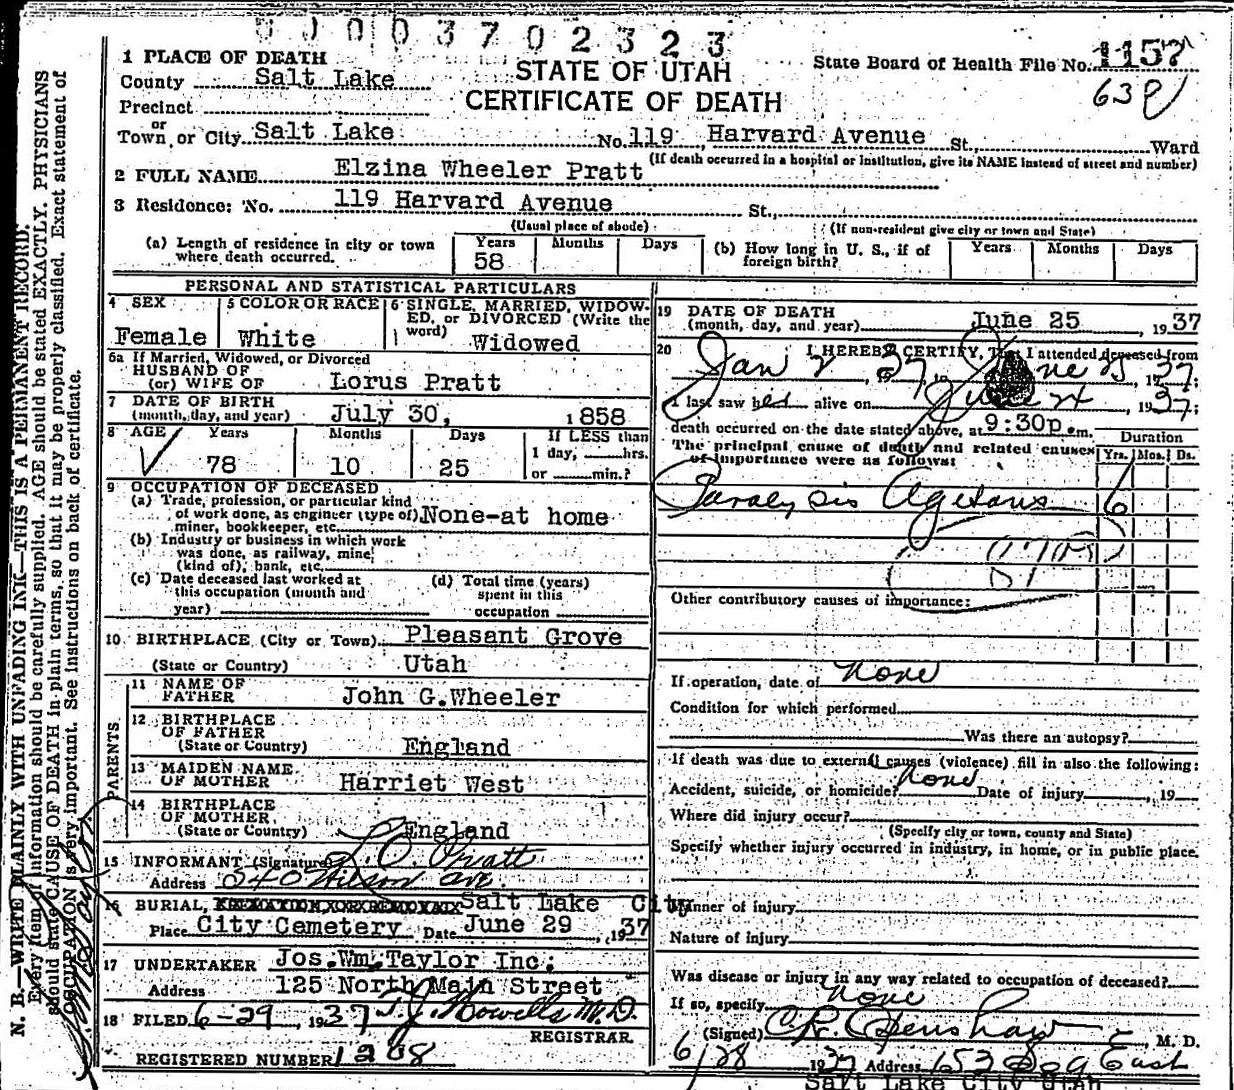 0 1 0 0 3 7 0 2 3 2 3
STATE OF UTAH
CERTIFICATE OF DEATH
State Board of Health File No. 1157
1 PLACE OF DEATH
County Salt Lake
Precinct
or
Town, or City Salt Lake No. 119 Harvard Avenue St., Ward
(If death occurred in a hospital or institution, give its NAME instead of street and number)
2 FULL NAME Elzina Wheeler Pratt
3 Residence: No. 119 Harvard Avenue St.,
(Usual place of abode) (If non-resident give city or town and State)
(a) Length of residence in city or town where death occurred. Years 58 Months Days
(b) How long in U. S., if of foreign birth? Years Months Days
PERSONAL AND STATISTICAL PARTICULARS
4 SEX Female
5 COLOR OR RACE White
6 SINGLE, MARRIED, WIDOWED, or DIVORCED (Write the word) Widowed
6a If Married, Widowed, or Divorced
HUSBAND OF
(or) WIFE OF Lorus Pratt
7 DATE OF BIRTH
(month, day, and year) July 30, 1858
8 AGE Years 78 Months 10 Days 25
If LESS than
1 day, hrs.
or min.?
9 OCCUPATION OF DECEASED
(a) Trade, profession, or particular kind
of work done, as engineer (type of)
miner, bookkeeper, etc. None-at home
(b) Industry or business in which work
was done, as railway, mine
(kind of), bank, etc.
(c) Date deceased last worked at
this occupation (month and
year)
(d) Total time (years)
spent in this
occupation
10 BIRTHPLACE (City or Town) Pleasant Grove
(State or Country) Utah
PARENTS
11 NAME OF
FATHER John G. Wheeler
12 BIRTHPLACE
OF FATHER
(State or Country) England
13 MAIDEN NAME
OF MOTHER Harriet West
14 BIRTHPLACE
OF MOTHER
(State or Country) England
15 INFORMANT (Signature) L. O. Pratt
Address 540 Wilson Ave
16 BURIAL, Salt Lake City
Place City Cemetery Date June 29, 1937
17 UNDERTAKER Jos. Wm. Taylor Inc.
Address 125 North Main Street
18 FILED 6-29, 1937 T. J. Howells M.D.
REGISTRAR
REGISTERED NUMBER 1208
19 DATE OF DEATH
(month, day, and year) June 25, 1937
20 I HEREBY CERTIFY, That I attended deceased from
Jan 2, 1937, to June 25, 1937;
I last saw her alive on June 24, 1937;
death occurred on the date stated above, at 9:30p.m.
The principal cause of death and related causes
of importance were as follows:
Duration
Yrs. Mos. Ds.
Paralysis Agetans 6
Other contributory causes of importance:
If operation, date of none
Condition for which performed
Was there an autopsy?
If death was due to external causes (violence) fill in also the following:
Accident, suicide, or homicide? none Date of injury, 19
Where did injury occur?
(Specify city or town, county and State)
Specify whether injury occurred in industry, in home, or in public place.
Manner of injury
Nature of injury
Was disease or injury in any way related to occupation of deceased?
If so, specify none
(Signed) C. R. Openshaw, M. D.
6/28 1937 Address 153 So 9 East
Salt Lake City Utah
N. B.—WRITE PLAINLY WITH UNFADING INK—THIS IS A PERMANENT RECORD.
Every item of information should be carefully supplied. AGE should be stated EXACTLY. PHYSICIANS
should state CAUSE OF DEATH in plain terms, so that it may be properly classified. Exact statement of
OCCUPATION is very important. See instructions on back of certificate.